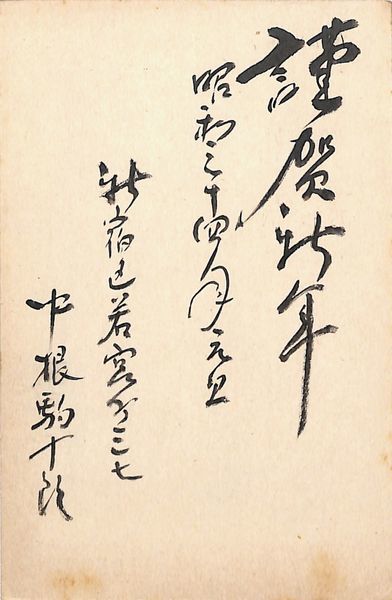 謹賀新年
昭和三十四年元旦
新宿区若宮町三七
中根駒十郎